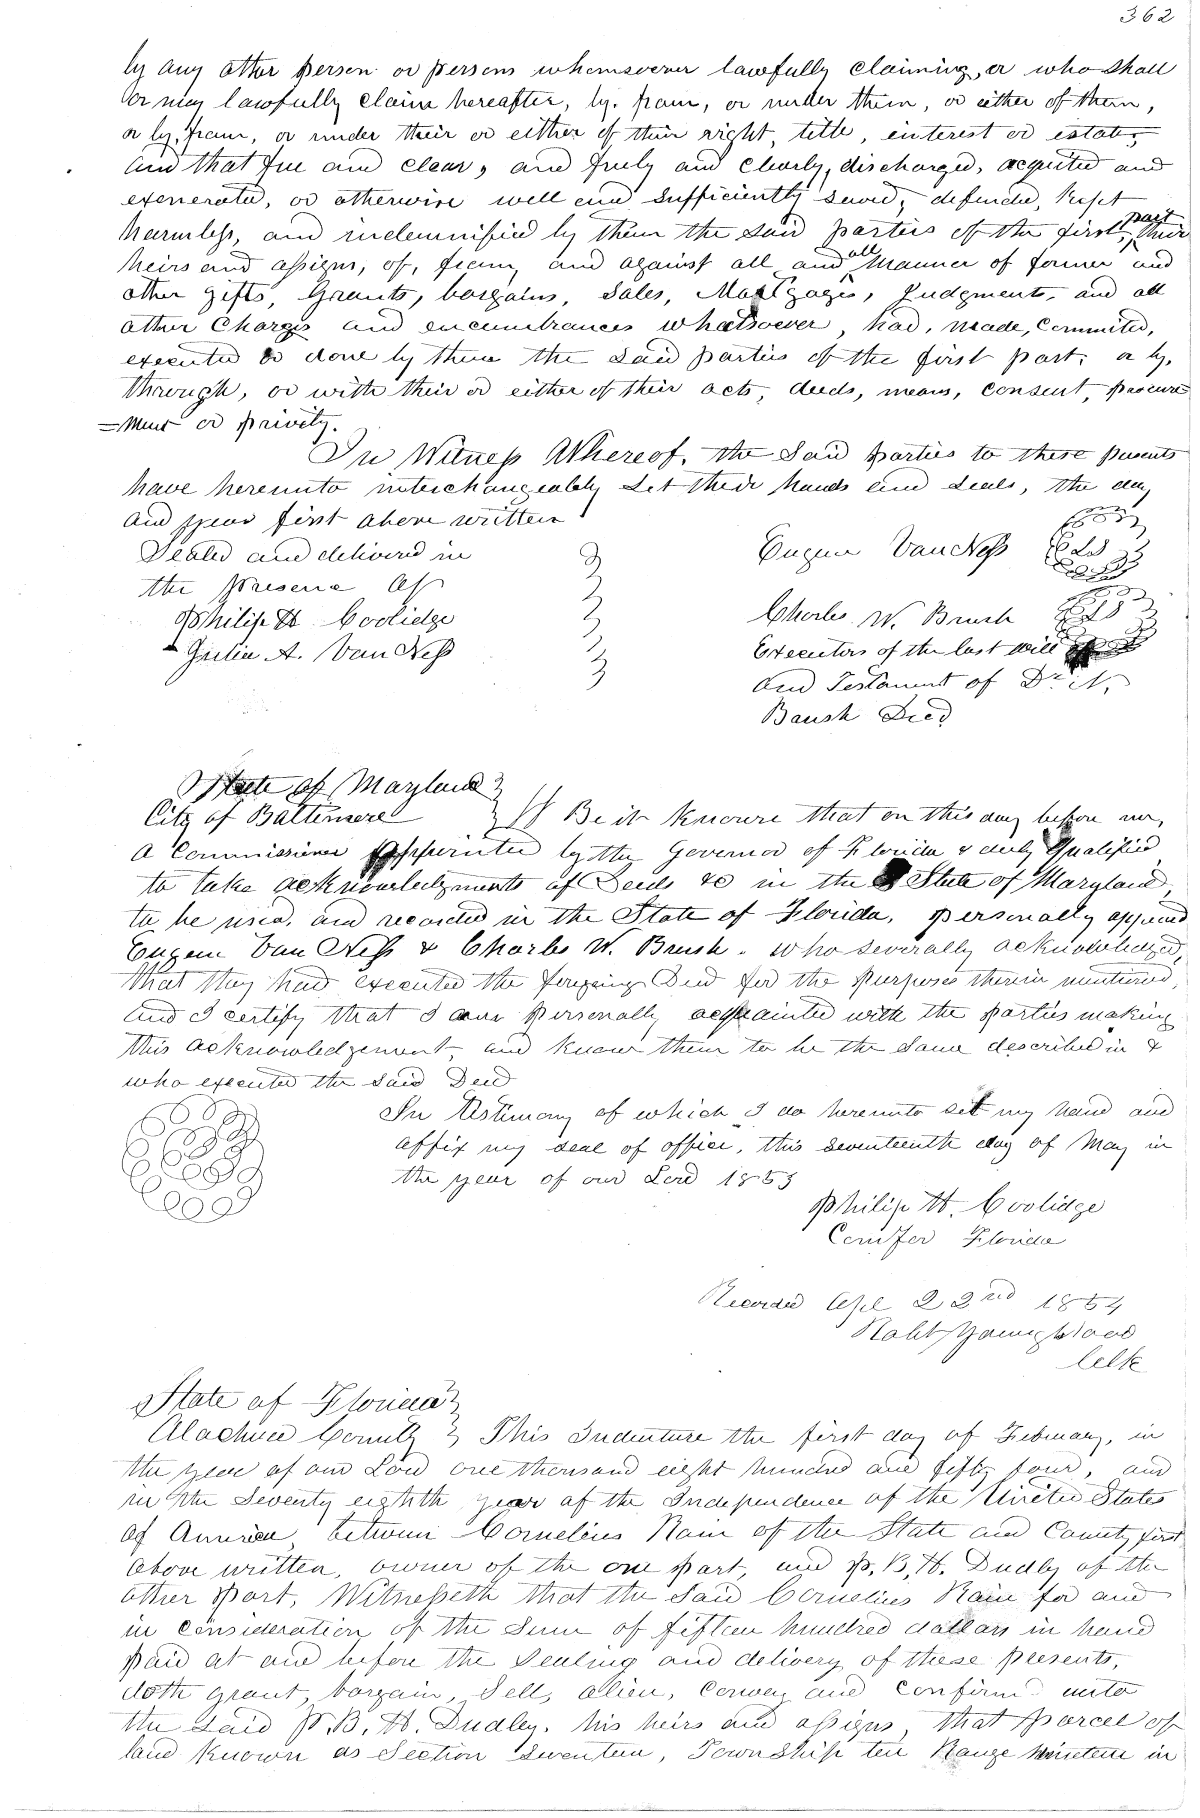 362
by any other person or persons whomsoever lawfully claiming, or who shall
or may lawfully claim hereafter, by, from, or under them, or either of them,
or by, from, or under their or either of their right, title, interest or estate,
and that free and clear, and freely and clearly, discharged, acquited and
exenerated, or otherwise well and sufficiently saved, defended, kept
harmless, and indemnified by them the said parties of the first part, their
heirs and assigns, of, from, and against all and all manner of former and
other gifts, Grants, bargains, Sales, Mortgages, Judgments, and all
other Charges and encumbrances whatsoever, had, made, committed,
executed or done by them the said parties of the first part; or by,
through, or with their or either of their acts, deeds, means, consent, procure
=ment or privity.
In Witness Whereof, the said parties to these presents
have hereunto interchangeably set their hands and seals, the day
and year first above written
Sealed and delivered in
the presence of
Philip H. Coolidge
Julia A. Van Ness
Eugene Van Ness LS
Charles W. Brush LS
Executors of the last will
and Testament of Dr. N.
Brush Decd
State of Maryland
City of Baltimore Be it known that on this day before me,
a Commissioner Appointed by the Governor of Florida & duly Qualified
to take acknowledgments of Deeds &c in the State of Maryland,
to be used, and recorded in the State of Florida, personally appeared
Eugene Van Ness & Charles W. Brush. who severally acknowledged,
that they had executed the foregoing Deed for the purposes therein mentioned,
and I certify that I am personally acquainted with the parties making
this acknowledgement, and know them to be the same described in &
who executed the said Deed
In testimony of which I do hereunto set my hand and
affix my seal of office, this seventeenth day of May in
the year of our Lord 1853
Philip H. Coolidge
Com for Florida
Recorded Apl 22nd 1854
Robt Youngblood
Clk
State of Florida
Alachua County This Indenture the first day of February, in
the year of our Lord one thousand eight hundred and fifty four, and
in the Seventy eighth year of the Independence of the United States
of America, between Cornelius Rain of the State and County first
above written, owner of the one part, and P. B. H. Dudley of the
other part, Witnesseth that the said Cornelius Rain for and
in consideration of the sum of fifteen hundred dollars in hand
paid at and before the sealing and delivery of these presents,
doth grant, bargain, Sell, alien, convey and confirm unto
the said P. B. H. Dudley, his heirs and assigns, that parcel of
land known as Section Seventeen, Township ten Range Nineteen in